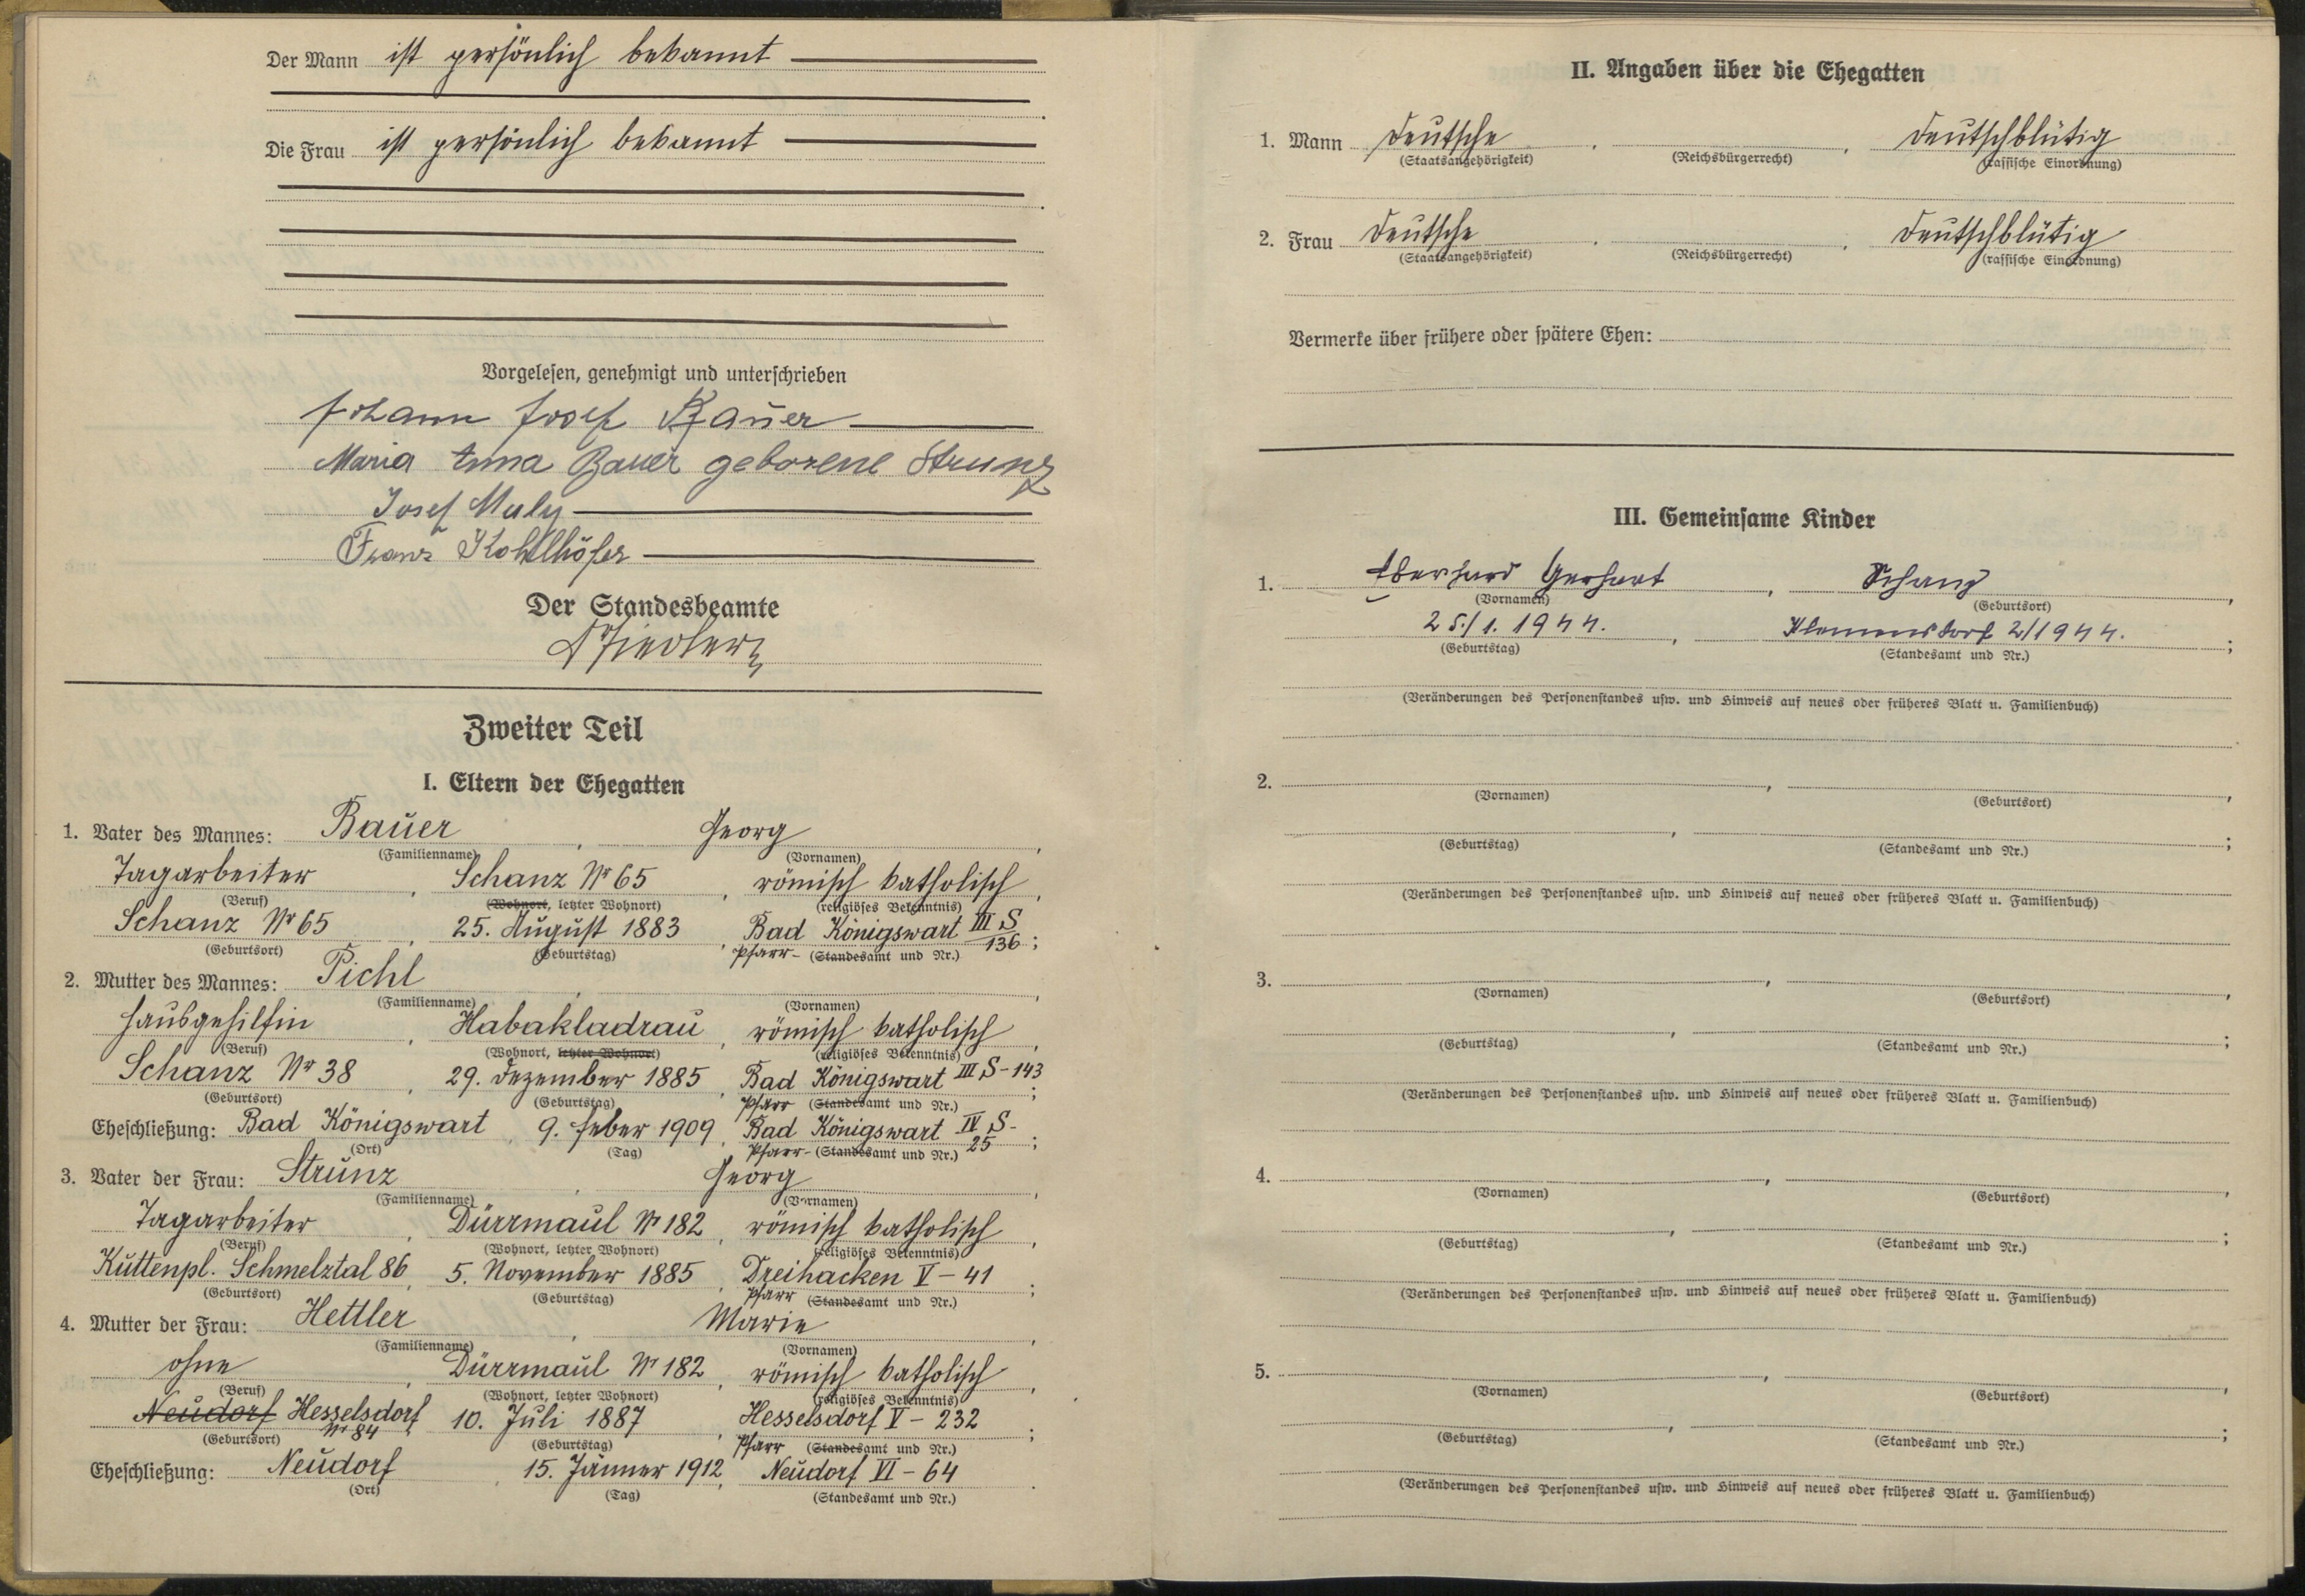 Der Mann ist persönlich bekannt
Die Frau ist persönlich bekannt
Vorgelesen, genehmigt und unterschrieben
Johann Josef Bauer
Maria Anna Bauer geborene Strunz
Josef Muly
Franz Kohlhöfer
Der Standesbeamte
Zweiter Teil
I. Eltern der Ehegatten
1. Vater des Mannes: Bauer, Georg,
(Familienname) (Vornamen)
Tagarbeiter, Schanz Nr 65, römisch katholisch,
(Beruf) (Wohnort, letzter Wohnort) (religiöses Bekenntnis)
Schanz Nr 65, 25. August 1883, Bad Königswart III S 136;
(Geburtsort) (Geburtstag) Pfarr- (Standesamt und Nr.)
2. Mutter des Mannes: Pichl,
(Familienname) (Vornamen)
Hausgehilfin, Habakladrau, römisch katholisch,
(Beruf) (Wohnort, letzter Wohnort) (religiöses Bekenntnis)
Schanz Nr 38, 29. Dezember 1885, Bad Königswart III S-143;
(Geburtsort) (Geburtstag) Pfarr (Standesamt und Nr.)
Eheschließung: Bad Königswart, 9. Feber 1909, Bad Königswart IV S-25;
(Ort) (Tag) Pfarr- (Standesamt und Nr.)
3. Vater der Frau: Strunz, Georg,
(Familienname) (Vornamen)
Tagarbeiter, Dürrmaul Nr 182, römisch katholisch,
(Beruf) (Wohnort, letzter Wohnort) (religiöses Bekenntnis)
Kuttenpl. Schmelztal 86, 5. November 1885, Dreihacken V - 41;
(Geburtsort) (Geburtstag) Pfarr (Standesamt und Nr.)
4. Mutter der Frau: Hettler, Marie,
(Familienname) (Vornamen)
ohne, Dürrmaul Nr 182, römisch katholisch,
(Beruf) (Wohnort, letzter Wohnort) (religiöses Bekenntnis)
Neudorf Hesselsdorf Nr 84, 10. Juli 1887, Hesselsdorf V - 232;
(Geburtsort) (Geburtstag) Pfarr (Standesamt und Nr.)
Eheschließung: Neudorf, 15. Jänner 1912, Neudorf VI - 64.
(Ort) (Tag) (Standesamt und Nr.)
II. Angaben über die Ehegatten
1. Mann Deutsche, , Deutschblütig
(Staatsangehörigkeit) (Reichsbürgerrecht) (rassische Einordnung)
2. Frau Deutsche, , Deutschblütig
(Staatsangehörigkeit) (Reichsbürgerrecht) (rassische Einordnung)
Vermerke über frühere oder spätere Ehen:
III. Gemeinsame Kinder
1. Eberhard Gerhart, Schanz,
(Vornamen) (Geburtsort)
25/1. 1944., 2/1944.;
(Geburtstag) (Standesamt und Nr.)
(Veränderungen des Personenstandes usw. und Hinweis auf neues oder früheres Blatt u. Familienbuch)
2. , ,
(Vornamen) (Geburtsort)
, ;
(Geburtstag) (Standesamt und Nr.)
(Veränderungen des Personenstandes usw. und Hinweis auf neues oder früheres Blatt u. Familienbuch)
3. , ,
(Vornamen) (Geburtsort)
, ;
(Geburtstag) (Standesamt und Nr.)
(Veränderungen des Personenstandes usw. und Hinweis auf neues oder früheres Blatt u. Familienbuch)
4. , ,
(Vornamen) (Geburtsort)
, ;
(Geburtstag) (Standesamt und Nr.)
(Veränderungen des Personenstandes usw. und Hinweis auf neues oder früheres Blatt u. Familienbuch)
5. , ,
(Vornamen) (Geburtsort)
, ;
(Geburtstag) (Standesamt und Nr.)
(Veränderungen des Personenstandes usw. und Hinweis auf neues oder früheres Blatt u. Familienbuch)